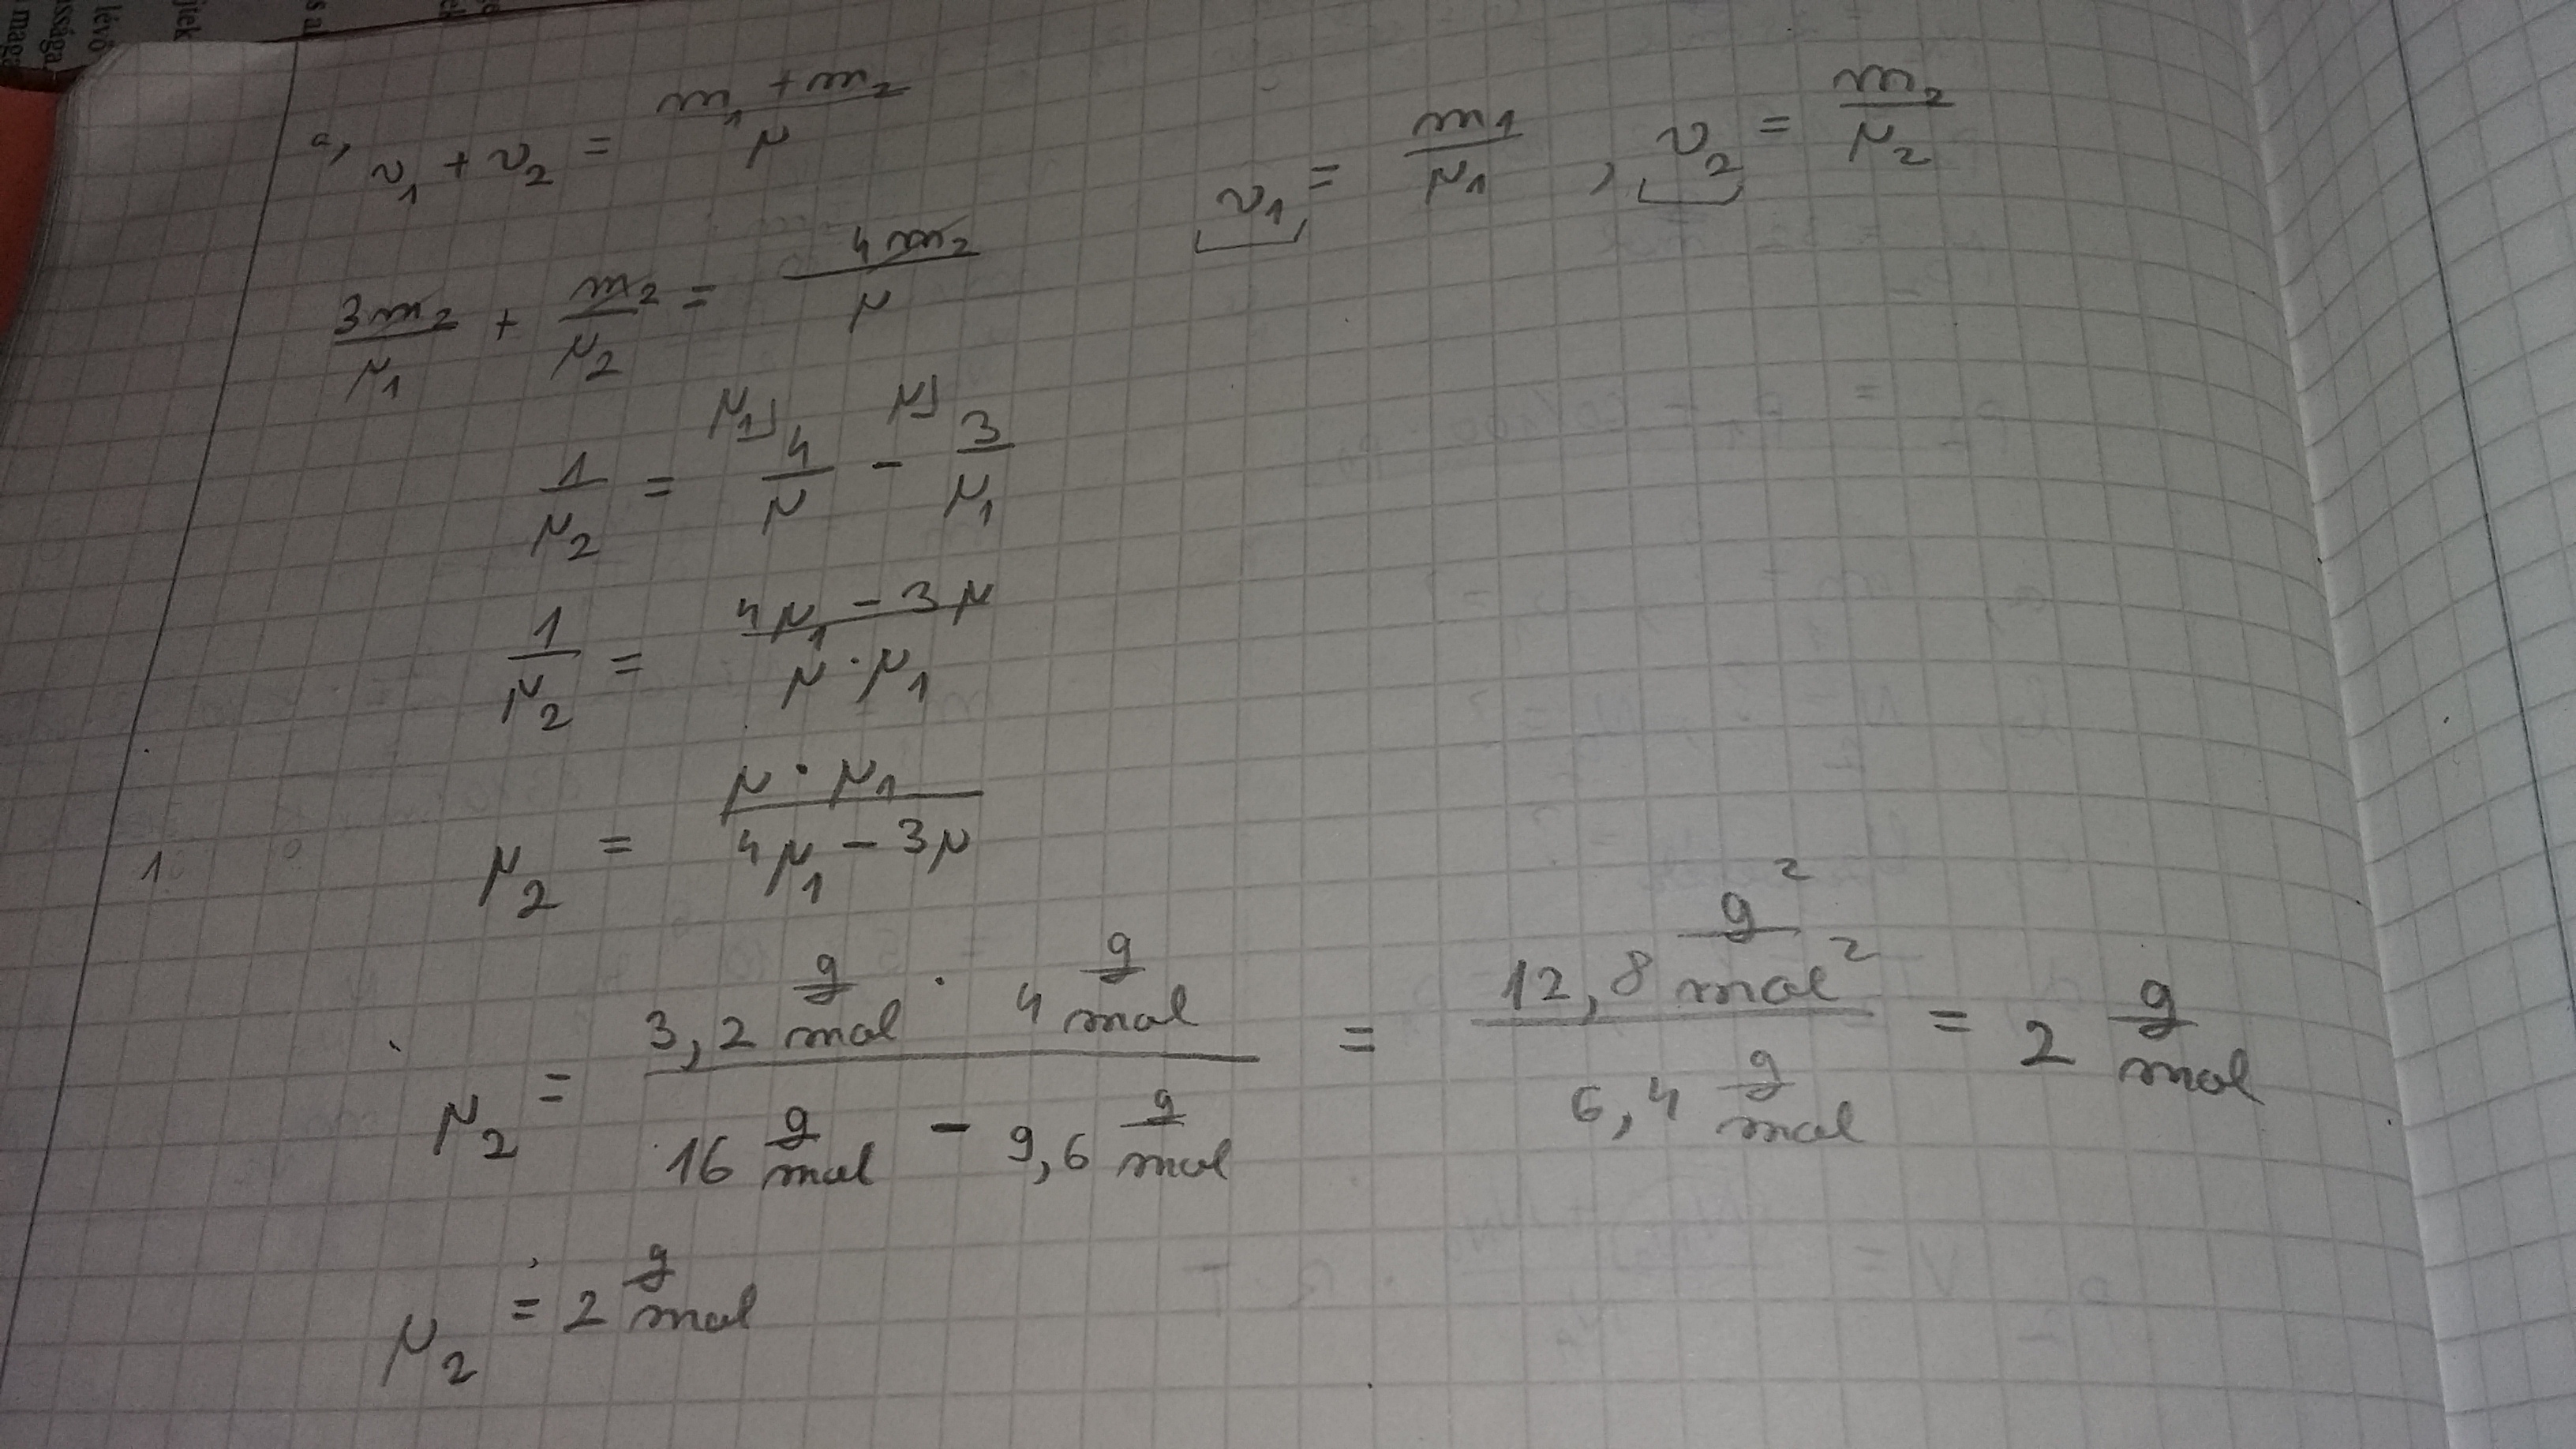 jtek
lévő
ssága
mag
s al
a, ν₁ + ν₂ = (m₁ + m₂)/μ    ν₁ = m₁/μ₁ , ν₂ = m₂/μ₂
3m₂/μ₁ + m₂/μ₂ = 4m₂/μ
1/μ₂ = μ₁⌋ 4/μ - μ⌋ 3/μ₁
1/μ₂ = (4μ₁ - 3μ)/(μ · μ₁)
1    μ₂ = (μ · μ₁)/(4μ₁ - 3μ)
μ₂ = (3,2 g/mol · 4 g/mol)/(16 g/mol - 9,6 g/mol) = (12,8 g²/mol²)/(6,4 g/mol) = 2 g/mol
μ₂ = 2 g/mol